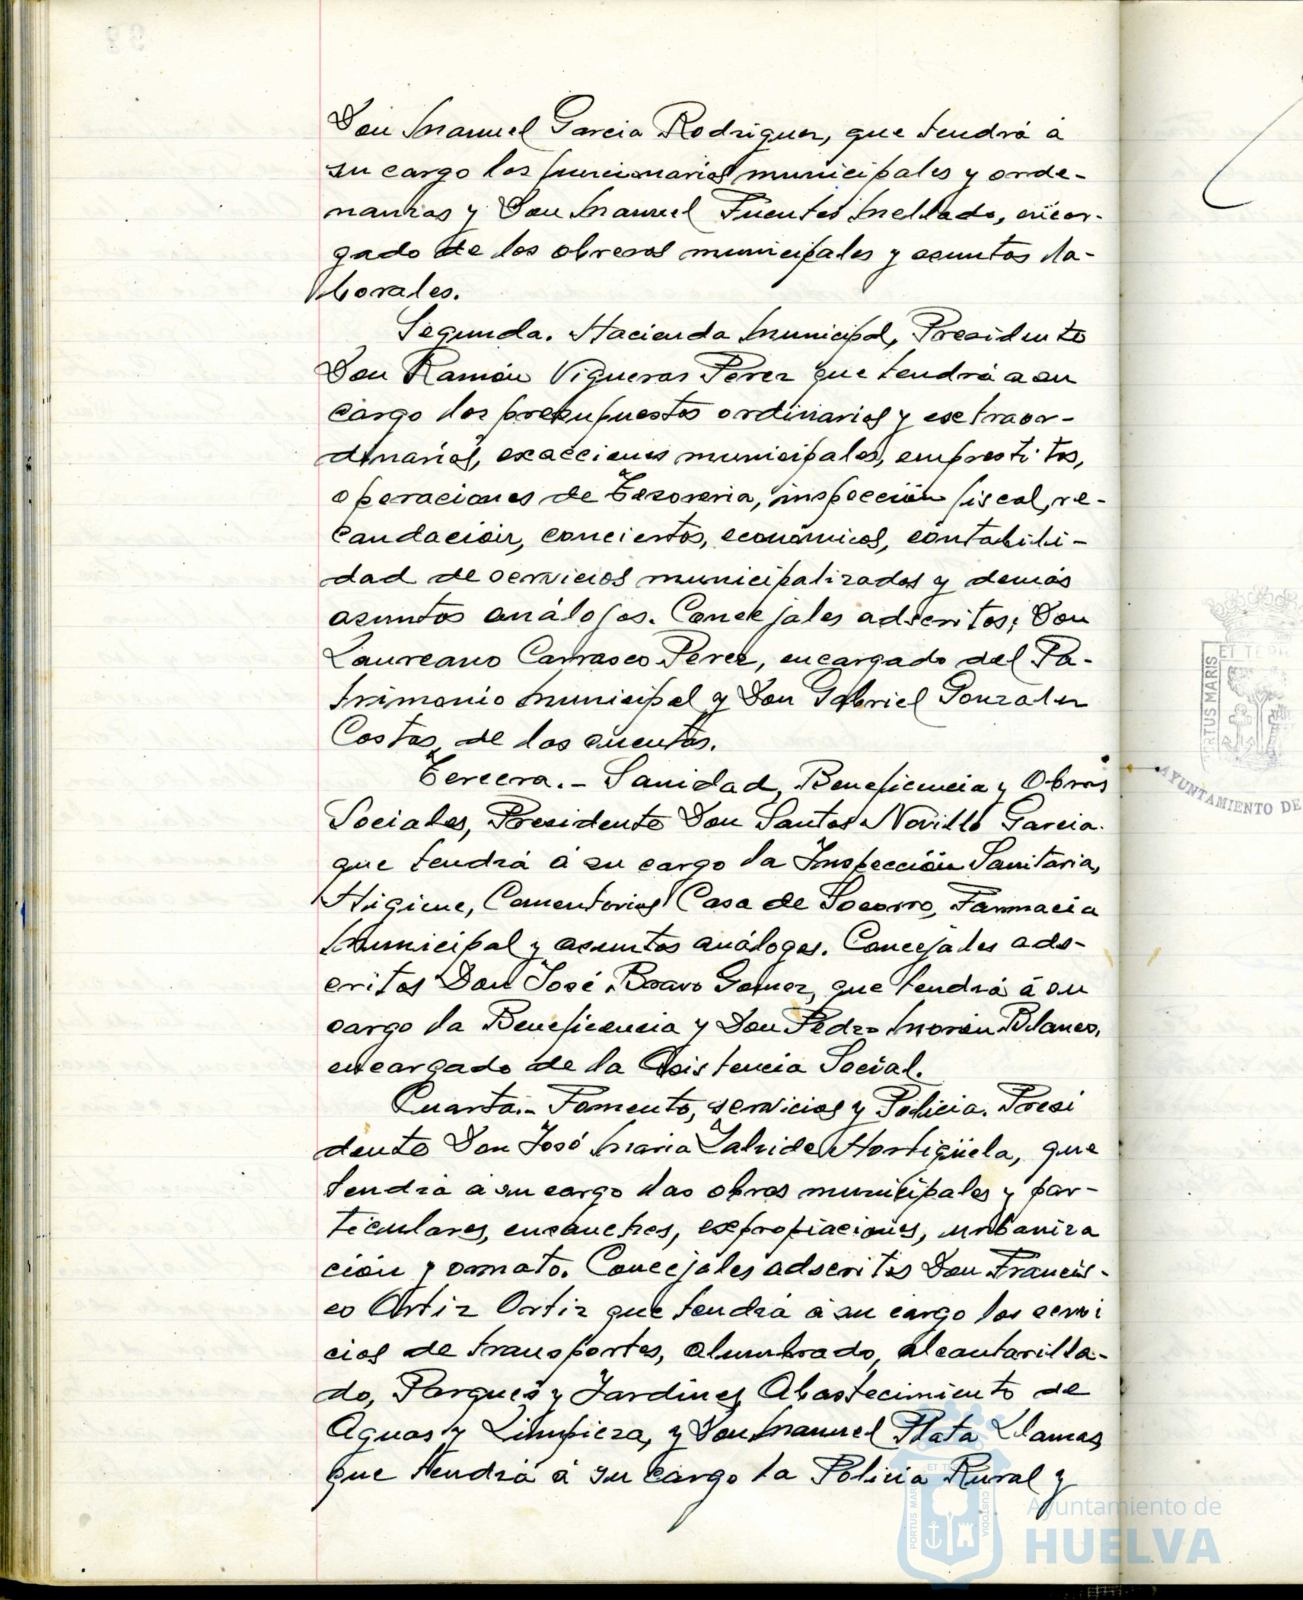 Don Manuel Garcia Rodriguez, que tendrá á
su cargo los funcionarios municipales y orde-
nanzas y Don Manuel Fuentes Mellado, encar-
gado de los obreros municipales y asuntos la-
borales.
Segunda. Hacienda Municipal, Presidente
Don Ramón Vigueras Perez que tendrá a su
cargo los presupuestos ordinarios y extraor-
dinarios, exacciones municipales, emprestitos,
operaciones de Tesoreria, inspección fiscal, re-
caudación, conciertos, económicos, contabili-
dad de servicios municipalizados y demás
asuntos análogos. Concejales adscritos; Don
Laureano Carrasco Perez, encargado del Pa-
trimonio Municipal y Don Gabriel Gonzalez
Costas, de las cuentas.
Tercera.- Sanidad, Beneficencia y Obras
Sociales, Presidente Don Santos Novillo Garcia
que tendrá á su cargo la Inspección Sanitaria,
Higiene, Cementerios Casa de Socorro, Farmacia
Municipal y asuntos análogos. Concejales ads-
critos Don José Bravo Gomez, que tendrá á su
cargo la Beneficencia y Don Pedro Morón Blanco,
encargado de la Asistencia Social.
Cuarta.- Fomento, servicios y Policia. Presi
dente Don José Maria Zalvide Hortigüela, que
tendrá á su cargo las obras municipales y par-
ticulares, ensanches, expropiaciones, urbaniza
ción y ornato. Concejales adscritos Don Francis-
co Ortiz Ortiz que tendrá á su cargo los servi
cios de transportes, alumbrado, alcantarilla-
do, Parques y Jardines, Abastecimiento de
Aguas y Limpieza, y Don Manuel Plata Llamas
que tendrá á su cargo la Policia Rural y
PORTUS MARIS
AYUNTAMIENTO DE
Ayuntamiento de
HUELVA